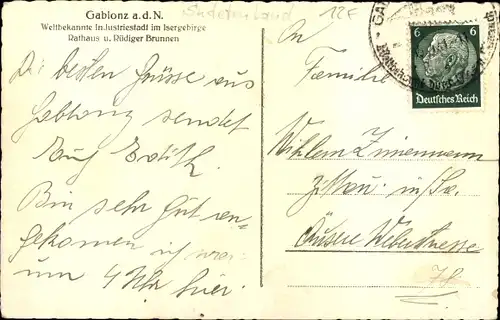 Gablonz a.d.N.
Weltbekannte Industriestadt im Isergebirge
Rathaus u. Rüdiger Brunnen
Sudetenland
12 F
Die besten Grüsse aus
Gablonz sendet
Euch Edith.
Bin sehr gut an-
gekommen ich war
um 4 Uhr hier.
An
Familie
Wilhelm Zimmermann
Zittau i/Sa.
Äussere Weberstrasse
6 6
Deutsches Reich